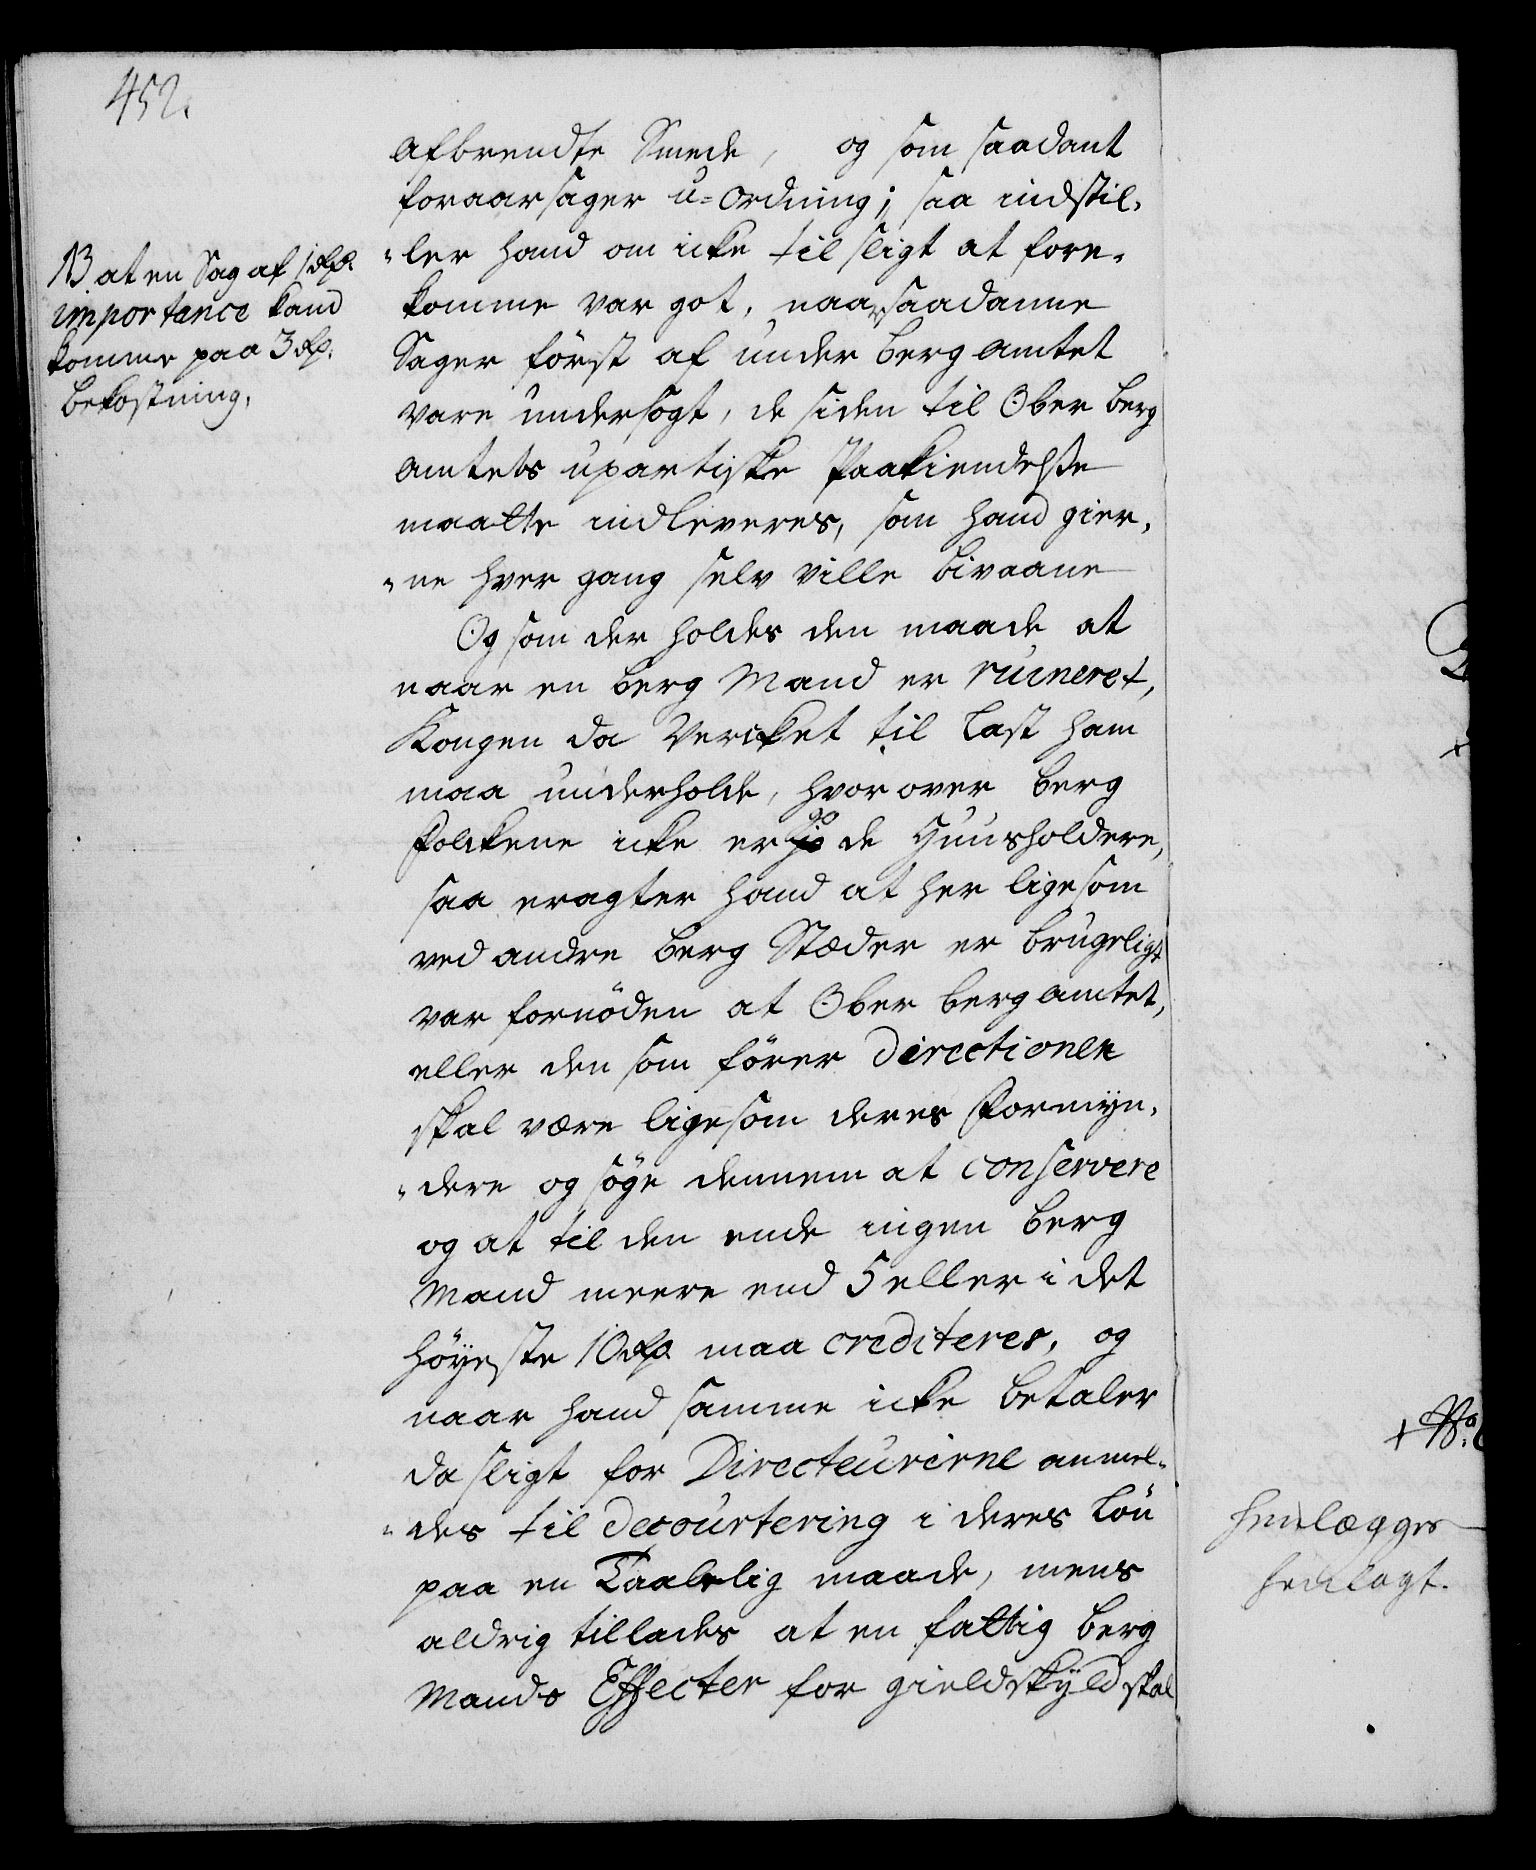 452.
afbrendte Smede, og som saadant
foraarsager u-ordning; saa indstil-
-ler hand om icke til sligt at fore-
komme var got, naar saadanne
Sager først af under berg amtet
vare undersøgt, de siden til Ober berg
amtets upartiske Paakiendelse
maatte indleveres, som hand gier-
-ne hver gang selv ville bivaane
Og som der holdes den maade at
naar en berg Mand er ruineret,
Kongen da Vercket til Last ham
maa underholde, hvor over berg
folckene icke er go de Huusholdere,
saa eragter hand at her ligesom
ved andre berg Stæder er brugeligt
var fornøden at Ober berg amtet,
eller den som fører Directionen
skal være ligesom deres Formyn-
-dere og søge dennem at conservere
og at til den ende ingen berg
Mand meere end 5 eller i det
høyeste 10 Rdr. maa crediteres, og
naar hand samme icke betaler
da sligt for Directeurerne anmel-
-des til decourtering i deres Løn
paa en Taalelig maade, mens
aldrig tillades at en fattig berg
Mands Effecter for gieldskyld skal
NB at en Sag af 1 Rdr.
importance kand
komme paa 3 Rdr.
bekostning.
henlægges
henlagt.